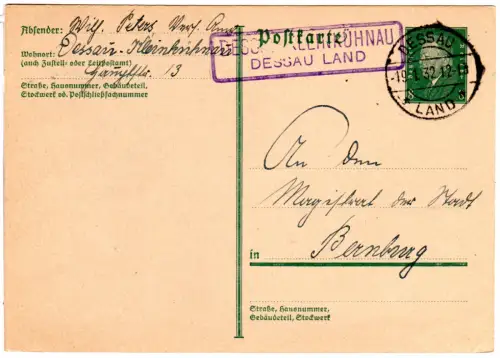 Absender: Wilh. Peters Verf. Anw.
Wohnort: Dessau-Kleinkühnau
(auch Zustell- oder Leitpostamt)
Hauptstr. 13
Straße, Hausnummer, Gebäudeteil,
Stockwerk od. Postschließfachnummer
Postkarte
DESSAU-KLEINKÜHNAU
DESSAU LAND
DESSAU
-19.1.32.12-
LAND
An den
Magistrat der Stadt
in Bernburg
Straße, Hausnummer,
Gebäudeteil, Stockwerk